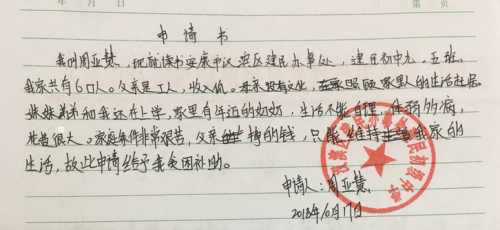 年 月 日 第 页
申请书
我叫周亚慧,现就读于安康市汉滨区建民办事处,建民初中九.五班,
我家共有6口人。父亲是工人,收入低。母亲没有文化,在家照顾家里人的生活起居.
妹妹弟弟和我还在上学,家里有年迈的奶奶,生活不能自理,体弱多病,
花费很大。家庭条件非常艰苦,父亲挣的钱,只能维持我家的
生活,故此申请给予我贫困补助。
申请人:周亚慧
2018年10月17日